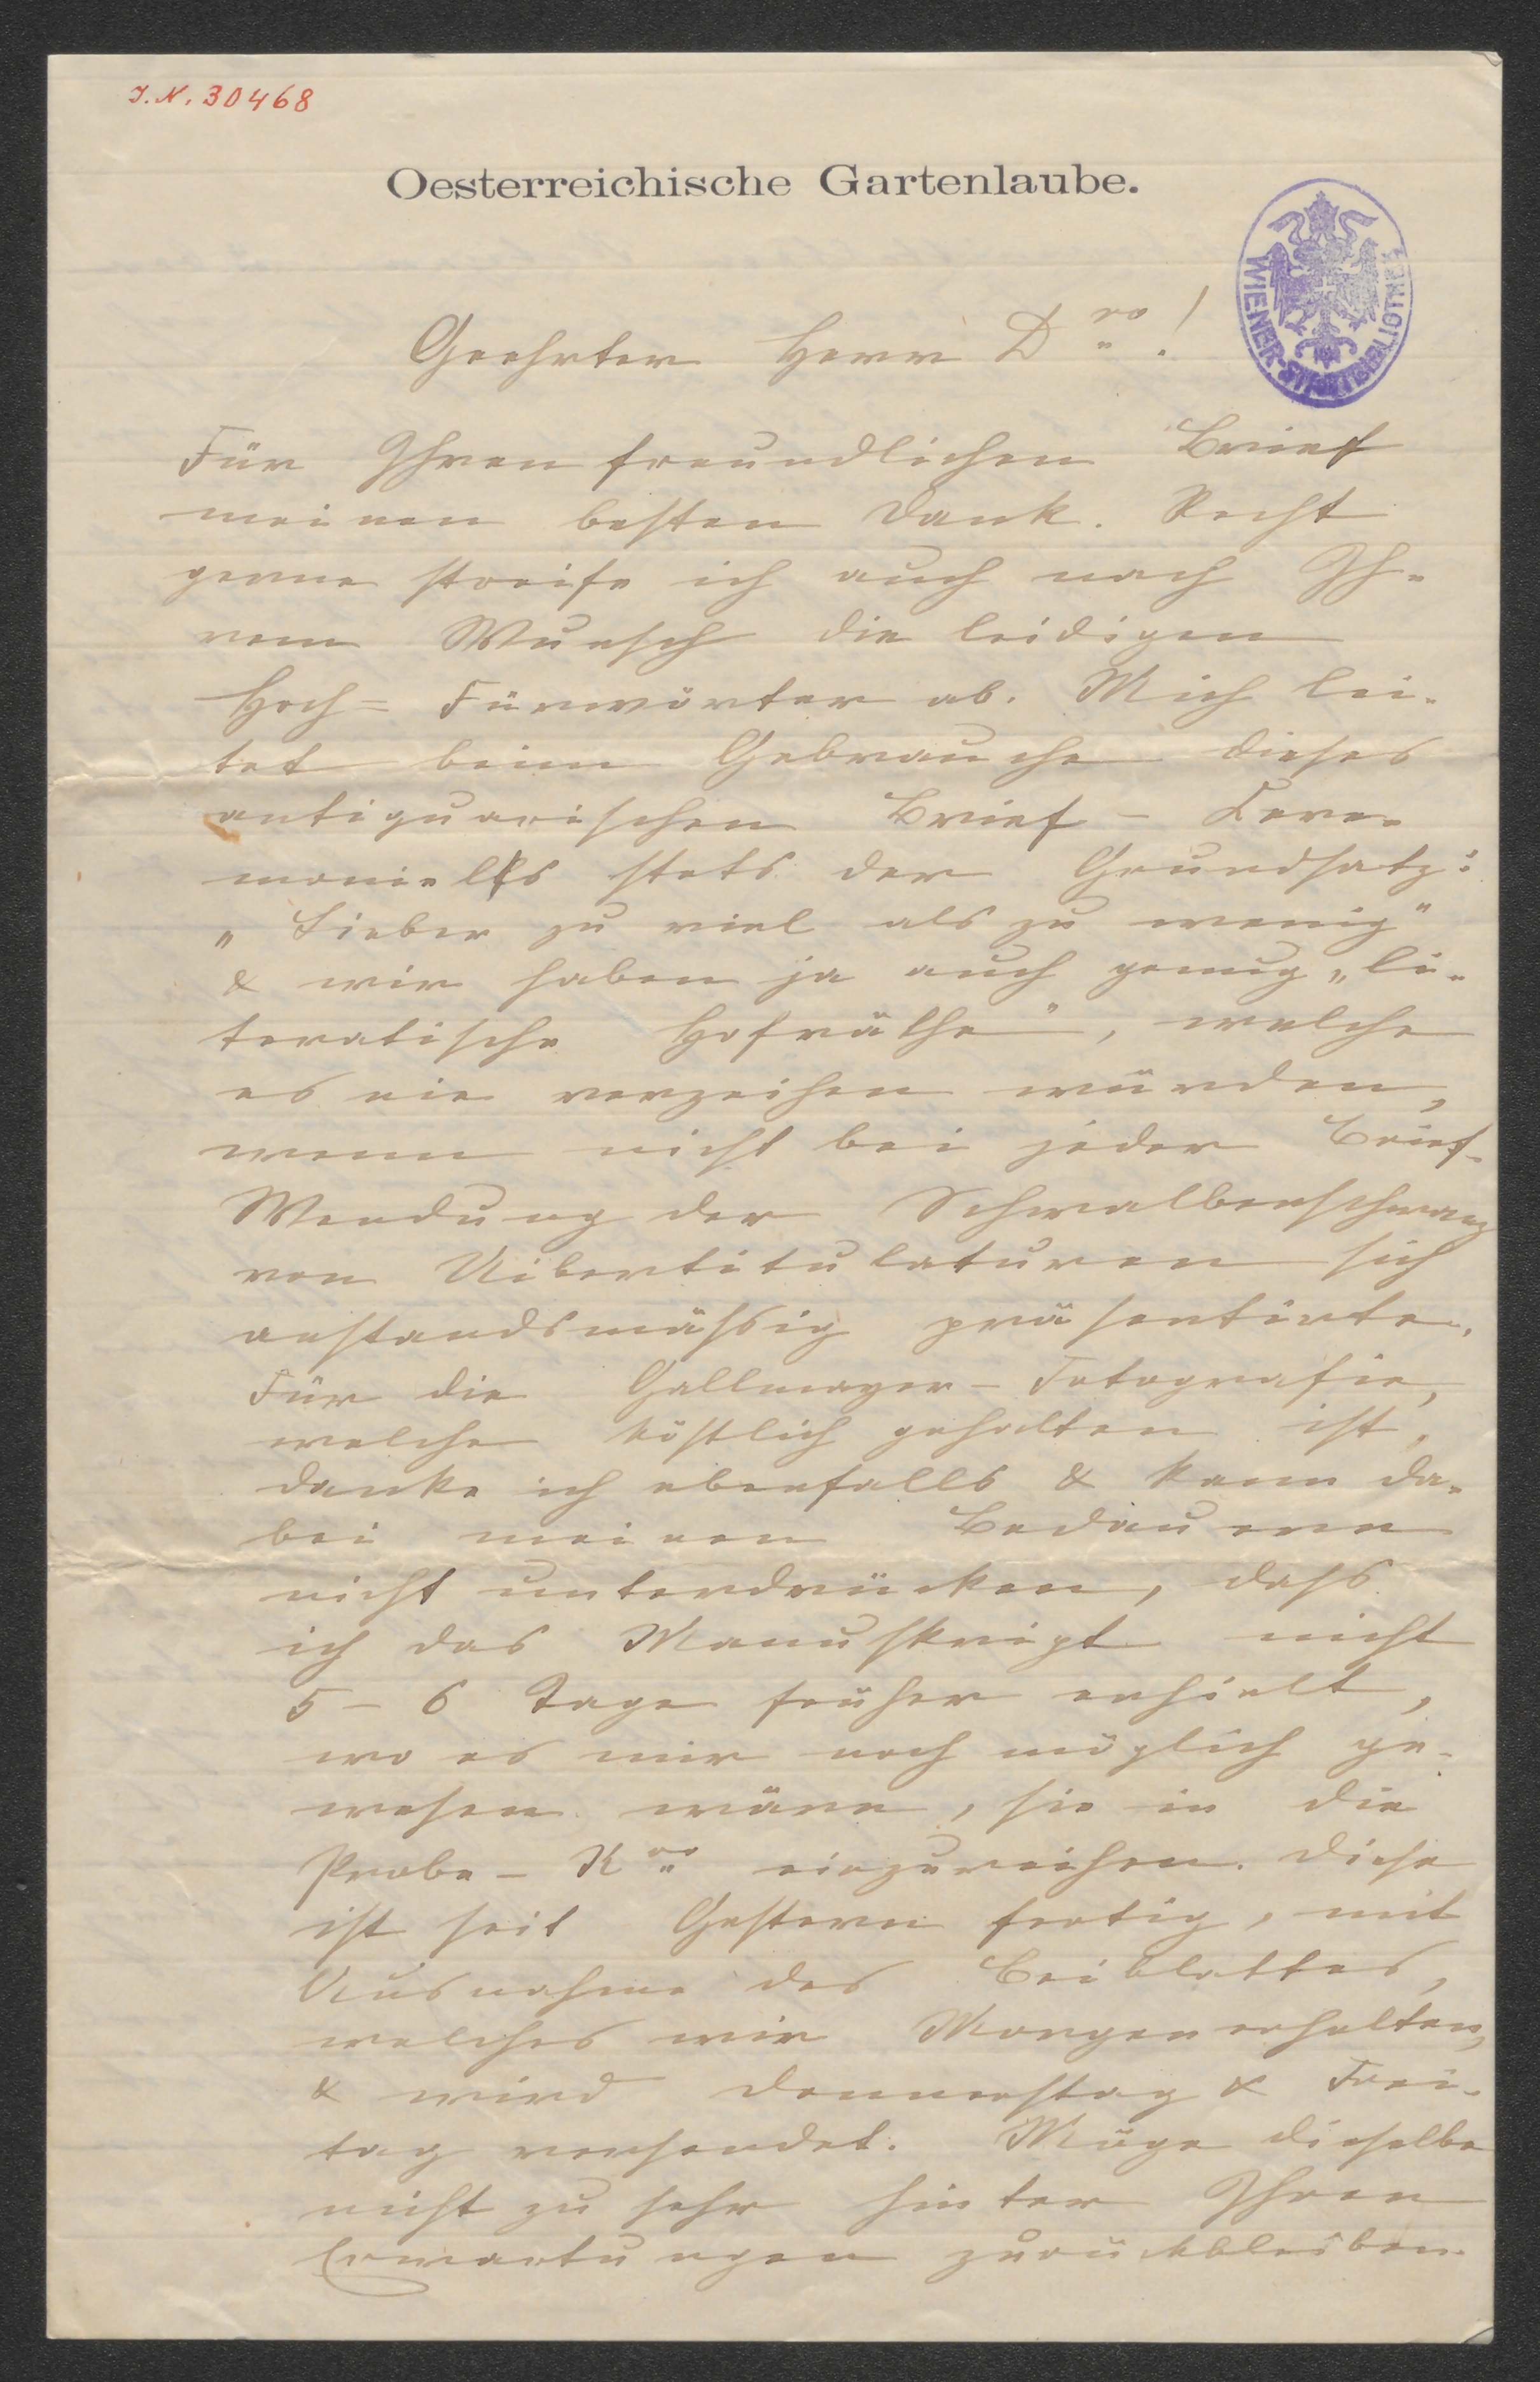 J. N. 30468
Oesterreichische Gartenlaube.
WIENER-STADTBIBLIOTHEK
Geehrter Herr Dro!
Für Ihren freundlichen Brief
meinen besten Dank. Recht
gerne streife ich auch nach Ih-
rem Wunsch die leidigen
Hoch- Fürwörter ab. Mich lei-
tet beim Gebrauche dieses
antiquarischen Brief-Cere-
moniells stets der Grundsatz:
„Lieber zu viel als zu wenig"
& wir haben ja auch genug „li-
teratische Hofräthe", welche
es nie verzeihen würden,
wenn nicht bei jeder Brief-
Wendung der Schwalbenschwanz
von Uibertitulaturen sich
anstandsmässig präsentirte.
Für die Gallmayer-Fotografie,
welche köstlich gehalten ist,
danke ich ebenfalls & kann da-
bei meinen Bedauern
nicht unterdrücken, dass
ich das Manuskript nicht
5-6 Tage früher erhielt,
wo es mir noch möglich ge-
wesen wäre, sie in die
Probe-Nro einzureihen. Diese
ist seit Gestern fertig, mit
Ausnahme des Beiblattes,
welches wir Morgen erhalten,
& wird Donnerstag & Frei-
tag versendet. Möge dieselbe
nicht zu sehr hinter Ihren
Erwartungen zurückbleiben.